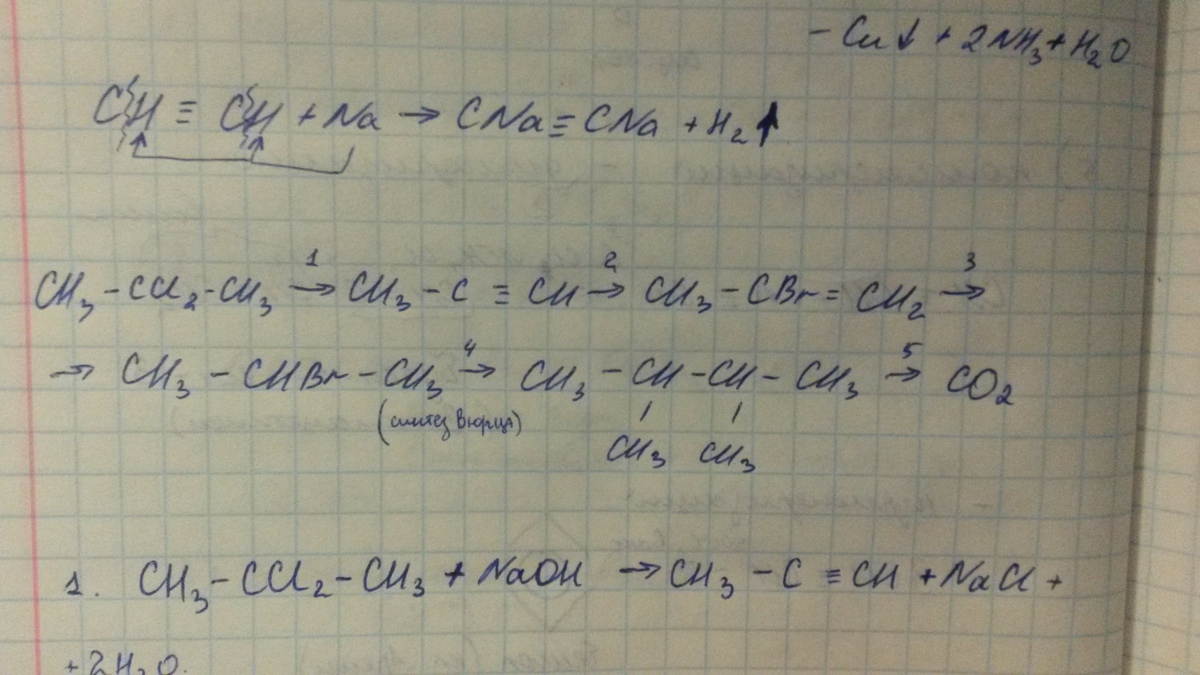 - Cu↓ + 2NH₃ + H₂O
CH ≡ CH + Na → CNa ≡ CNa + H₂↑
CH₃ - CCl₂ - CH₃ →¹ CH₃ - C ≡ CH →² CH₃ - CBr = CH₂ →³
→ CH₃ - CHBr - CH₃ →⁴ CH₃ - CH - CH - CH₃ →⁵ CO₂
(синтез Вюрца)
CH₃ CH₃
1. CH₃ - CCl₂ - CH₃ + NaOH → CH₃ - C ≡ CH + NaCl +
+ 2H₂O.